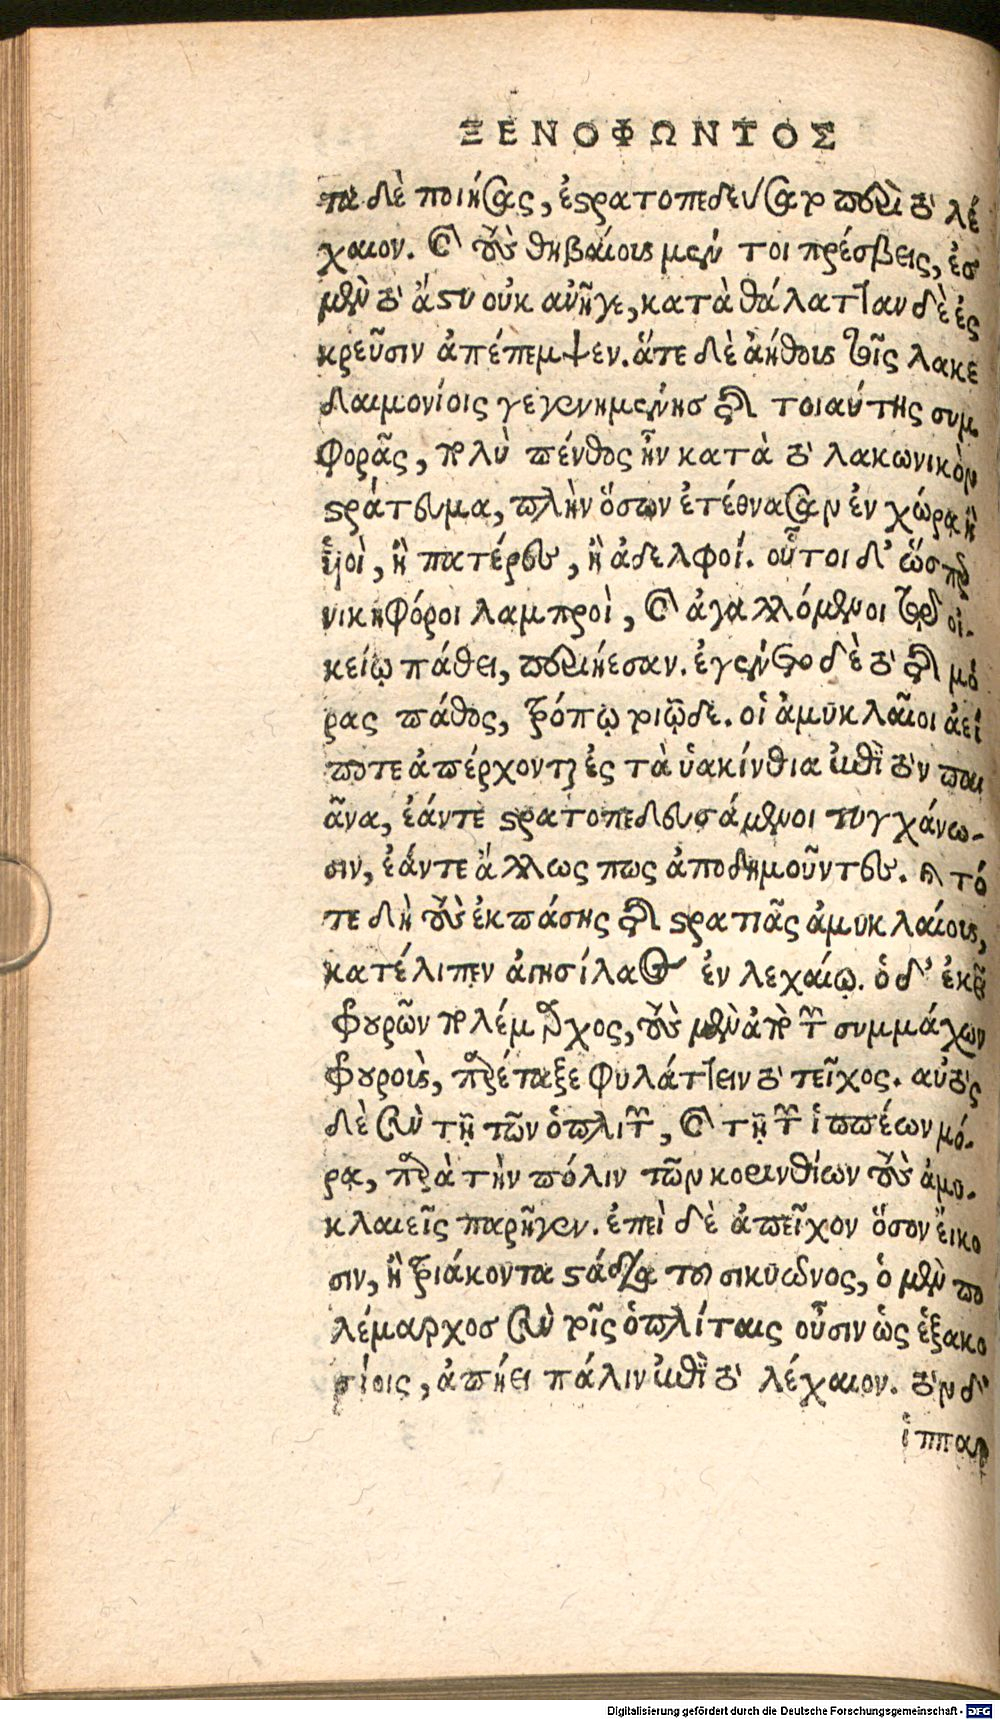 ΞΕΝΟΦΩΝΤΟΣ
τα δὲ ποιήσας, ἐστρατοπεδεύσατο περὶ τὸ λέ
χαιον. καὶ τοὺς θηβαίους μέν τοι πρέσβεις, ἐς
μὲν τὸ ἄστυ οὐκ ἀνῆγε, κατὰ θάλατταν δὲ ἐς
κρεῦσιν ἀπέπεμψεν. ἅτε δὲ ἀήθους τοῖς λακε
δαιμονίοις γεγενημένης τῆς τοιαύτης συμ
φορᾶς, πολὺ πένθος ἦν κατὰ τὸ λακωνικὸν
στράτευμα, πλὴν ὅσων ἐτέθνασαν ἐν χώρᾳ ἢ
ὑιοὶ, ἢ πατέρες, ἢ ἀδελφοί. οὗτοι δ' ὥσπερ
νικηφόροι λαμπροὶ, καὶ ἀγαλλόμενοι τῷ οἰ-
κείῳ πάθει, περιῄεσαν. ἐγένετο δὲ τὸ τῆς μό
ρας πάθος, τρόπῳ τοιῷδε. οἱ ἀμυκλαῖοι ἀεί
ποτε ἀπέρχονται ἐς τὰ ὑακίνθια ἐπὶ τὸν παι
ᾶνα, ἐάντε στρατοπεδευσάμενοι τυγχάνω-
σιν, ἐάντε ἄλλως πως ἀποδημοῦντες. καὶ τό
τε δὴ τοὺς ἐκ πάσης τῆς στρατιᾶς ἀμυκλαίους,
κατέλιπεν ἀγησίλαος ἐν λεχαίῳ. ὁ δ' ἐκεῖ
φρουρῶν πολέμαρχος, τοὺς μὲν ἀπὸ τῶν συμμάχων
φρουροὺς, παρέταξε φυλάττειν τὸ τεῖχος. αὐτὸς
δὲ σὺν τῇ τῶν ὁπλιτῶν, καὶ τῇ τῶν ἱππέων μό-
ρᾳ, παρὰ τὴν πόλιν τῶν κορινθίων τοὺς ἀμυ-
κλαιεῖς παρῆγεν. ἐπεὶ δὲ ἀπεῖχον ὅσον εἴκο
σιν, ἢ τριάκοντα στάδια τοῦ σικυῶνος, ὁ μὲν πο
λέμαρχος σὺν τοῖς ὁπλίταις οὖσιν ὡς ἑξακο
σίοις, ἀπῄει πάλιν ἐπὶ τὸ λέχαιον. τὸν δ'
ἱππαρ
Digitalisierung gefördert durch die Deutsche Forschungsgemeinschaft - DFG